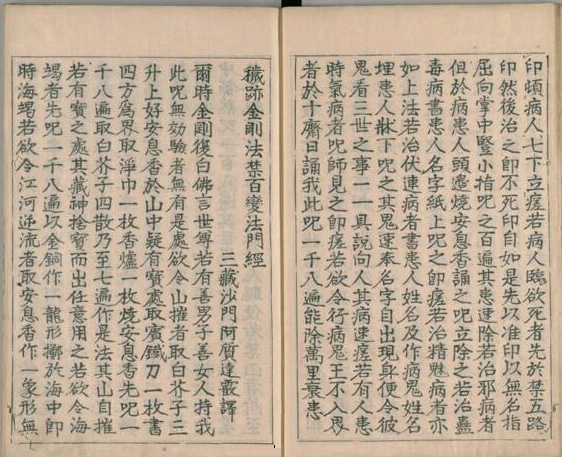 印頓病人七下立瘥若病人臨欲死者先於禁五路
印然後治之即不死印自如是先以准印以無名指
屈向掌中竪小指呪之百遍其患速除若治邪病者
但於病患人頭邊燒安息香誦之呪立除之若治蠱
毒病書患人名字紙上呪之即瘥若治精魅病者亦
如上法若治伏連病者書患人姓名及作病鬼姓名
埋患人牀下呪之其鬼速奉名字自出現身便令彼
鬼看三世之事一一具說向人其病速瘥若有人患
時氣病者呪師見之即瘥若欲令行病鬼王不入界
者於十齋日誦我此呪一千八遍能除萬里衰患
穢跡金剛法禁百變法門經
三藏沙門阿質達霰譯
爾時金剛復白佛言世尊若有善男子善女人持我
此呪無効驗者無有是處欲令山摧者取白芥子三
升上好安息香於山中疑有寳處取賓鐵刀一枚書
四方為界取淨巾一枚香爐一枚燒安息香先呪一
千八遍取白芥子四散乃至七遍作是法其山自摧
若有寳之處其藏神捨寳而出任意用之若欲令海
竭者先呪一千八遍以金銅作一龍形擲於海中即
時海竭若欲令江河逆流者取安息香作一象形無